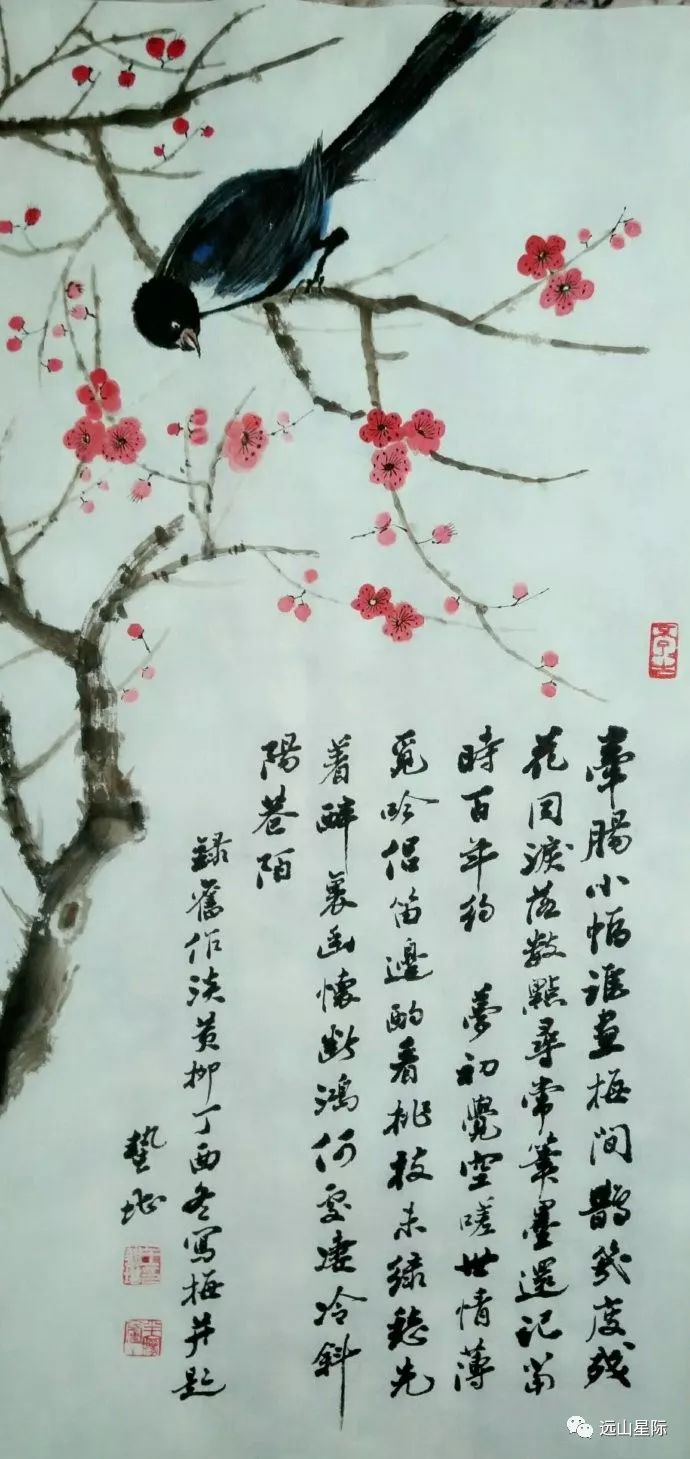 牽腸小幅誰畫梅間鵲幾度殘
花同淚落數點尋常筆墨還記當
時百年約 夢初覺空嗟世情薄
覓吟侶笛邊酌看桃枝未綠愁先
著醉裏幽懷斷鴻何處淒冷斜
陽巷陌
錄舊作淡黃柳丁酉冬寫梅并題
蟄堪
远山星际